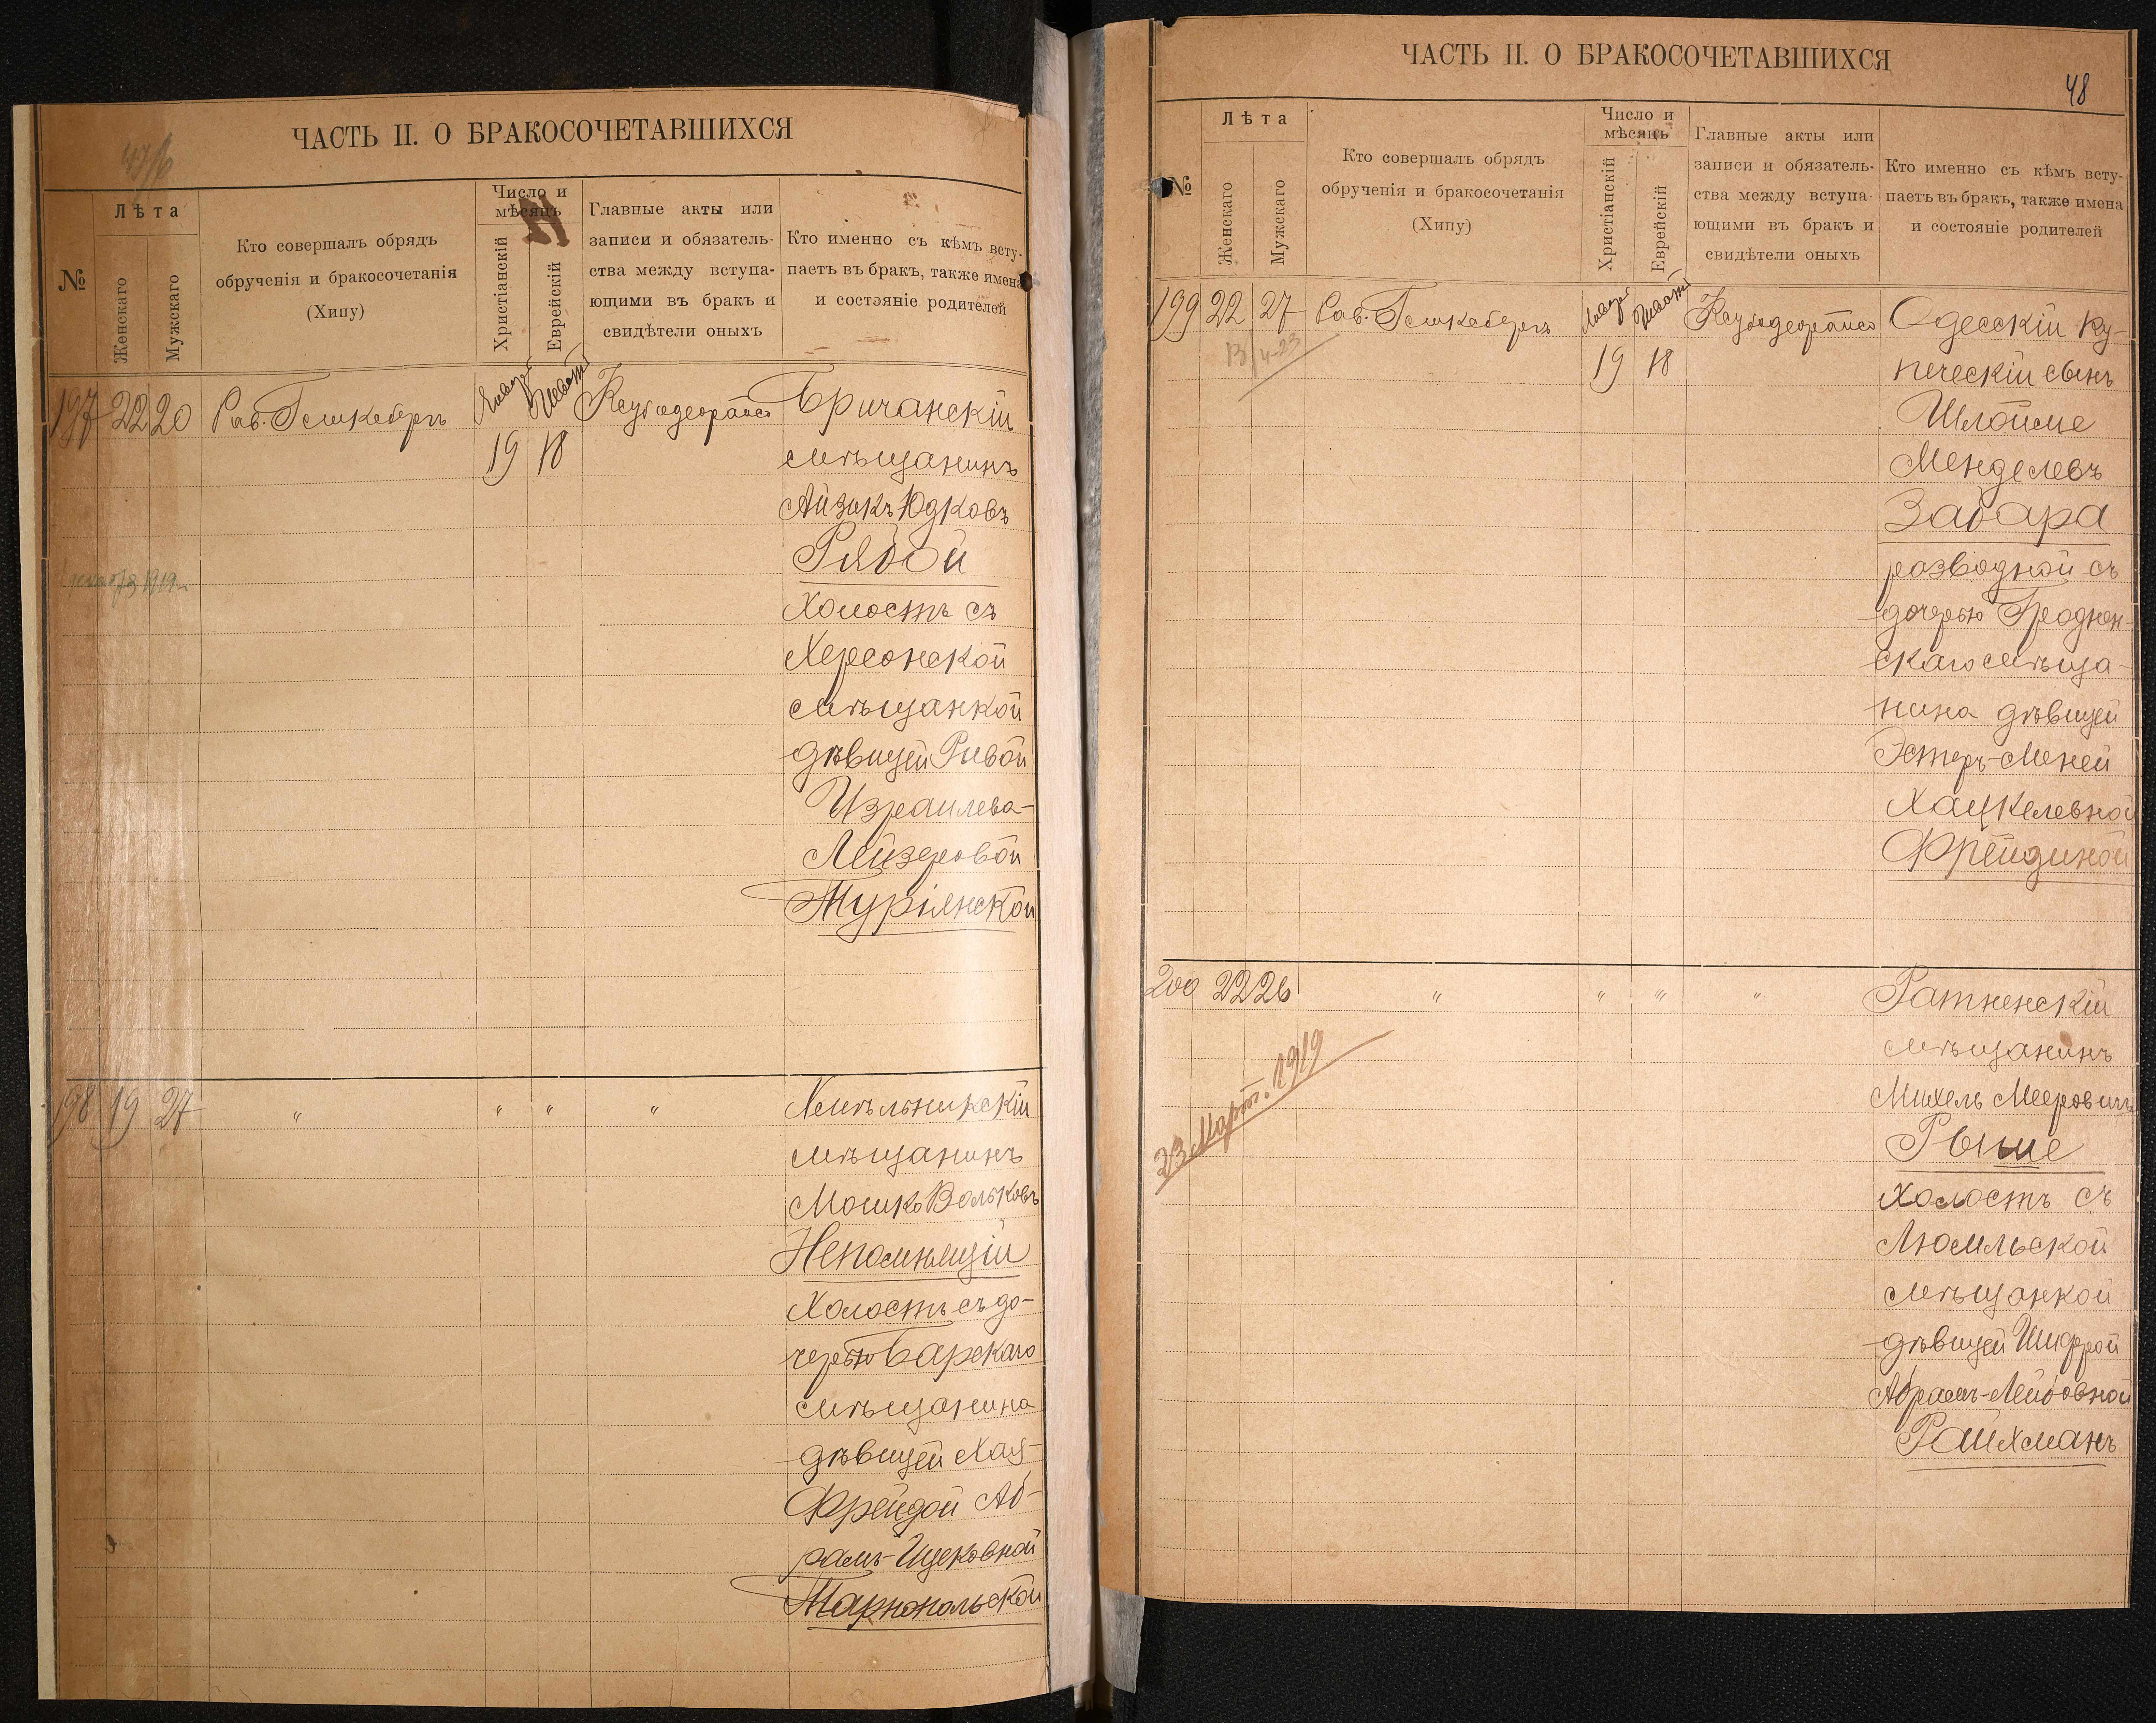 ЧАСТЬ II. О БРАКОСОЧЕТАВШИХСЯ
№
Лѣта
Женскаго
Мужскаго
Кто совершалъ обрядъ
обрученія и бракосочетанія
(Хипу)
Число и
мѣсяцъ
Христіанскій
Еврейскій
Главные акты или
записи и обязатель-
ства между вступа-
ющими въ бракъ и
свидѣтели оныхъ
Кто именно съ кѣмъ всту-
паетъ въ бракъ, также имена
и состояніе родителей
197 22 20 Рав.
19 18
Бричанскій
мѣщанинъ
Айзикъ Юдковъ
Рябой
Холостъ съ
Херсонской
мѣщанкой
дѣвицей Ривой
Израилева-
Лейзеровой
Турянской
198 19 27 " " " "
Хмѣльникскій
мѣщанинъ
Мошко Вольковъ
Непомнящій
Холостъ съ до-
черью Барскаго
мѣщанина
дѣвицей Хая-
Фрейдой Аб-
рамъ-Ицковной
Тарнопольской
ЧАСТЬ II. О БРАКОСОЧЕТАВШИХСЯ
48
№
Лѣта
Женскаго
Мужскаго
Кто совершалъ обрядъ
обрученія и бракосочетанія
(Хипу)
Число и
мѣсяцъ
Христіанскій
Еврейскій
Главные акты или
записи и обязатель-
ства между вступа-
ющими въ бракъ и
свидѣтели оныхъ
Кто именно съ кѣмъ всту-
паетъ въ бракъ, также имена
и состояніе родителей
199 22 27 Рав.
19 18
Одесскій ку-
печескій сынъ
Шлойме
Менделевъ
Забара
разводной съ
дочерью Гроднен-
скаго мѣща-
нина дѣвицей
Эстеръ-Меней
Хацкелевной
Фрейдиной
200 22 26 " " " "
23 Март. 1919
Ратненскій
мѣщанинъ
Михель Мееровичъ
Рыше
Холостъ съ
Любмльской
мѣщанкой
дѣвицей Шифрой
Абрамъ-Лейбовной
Райхманъ